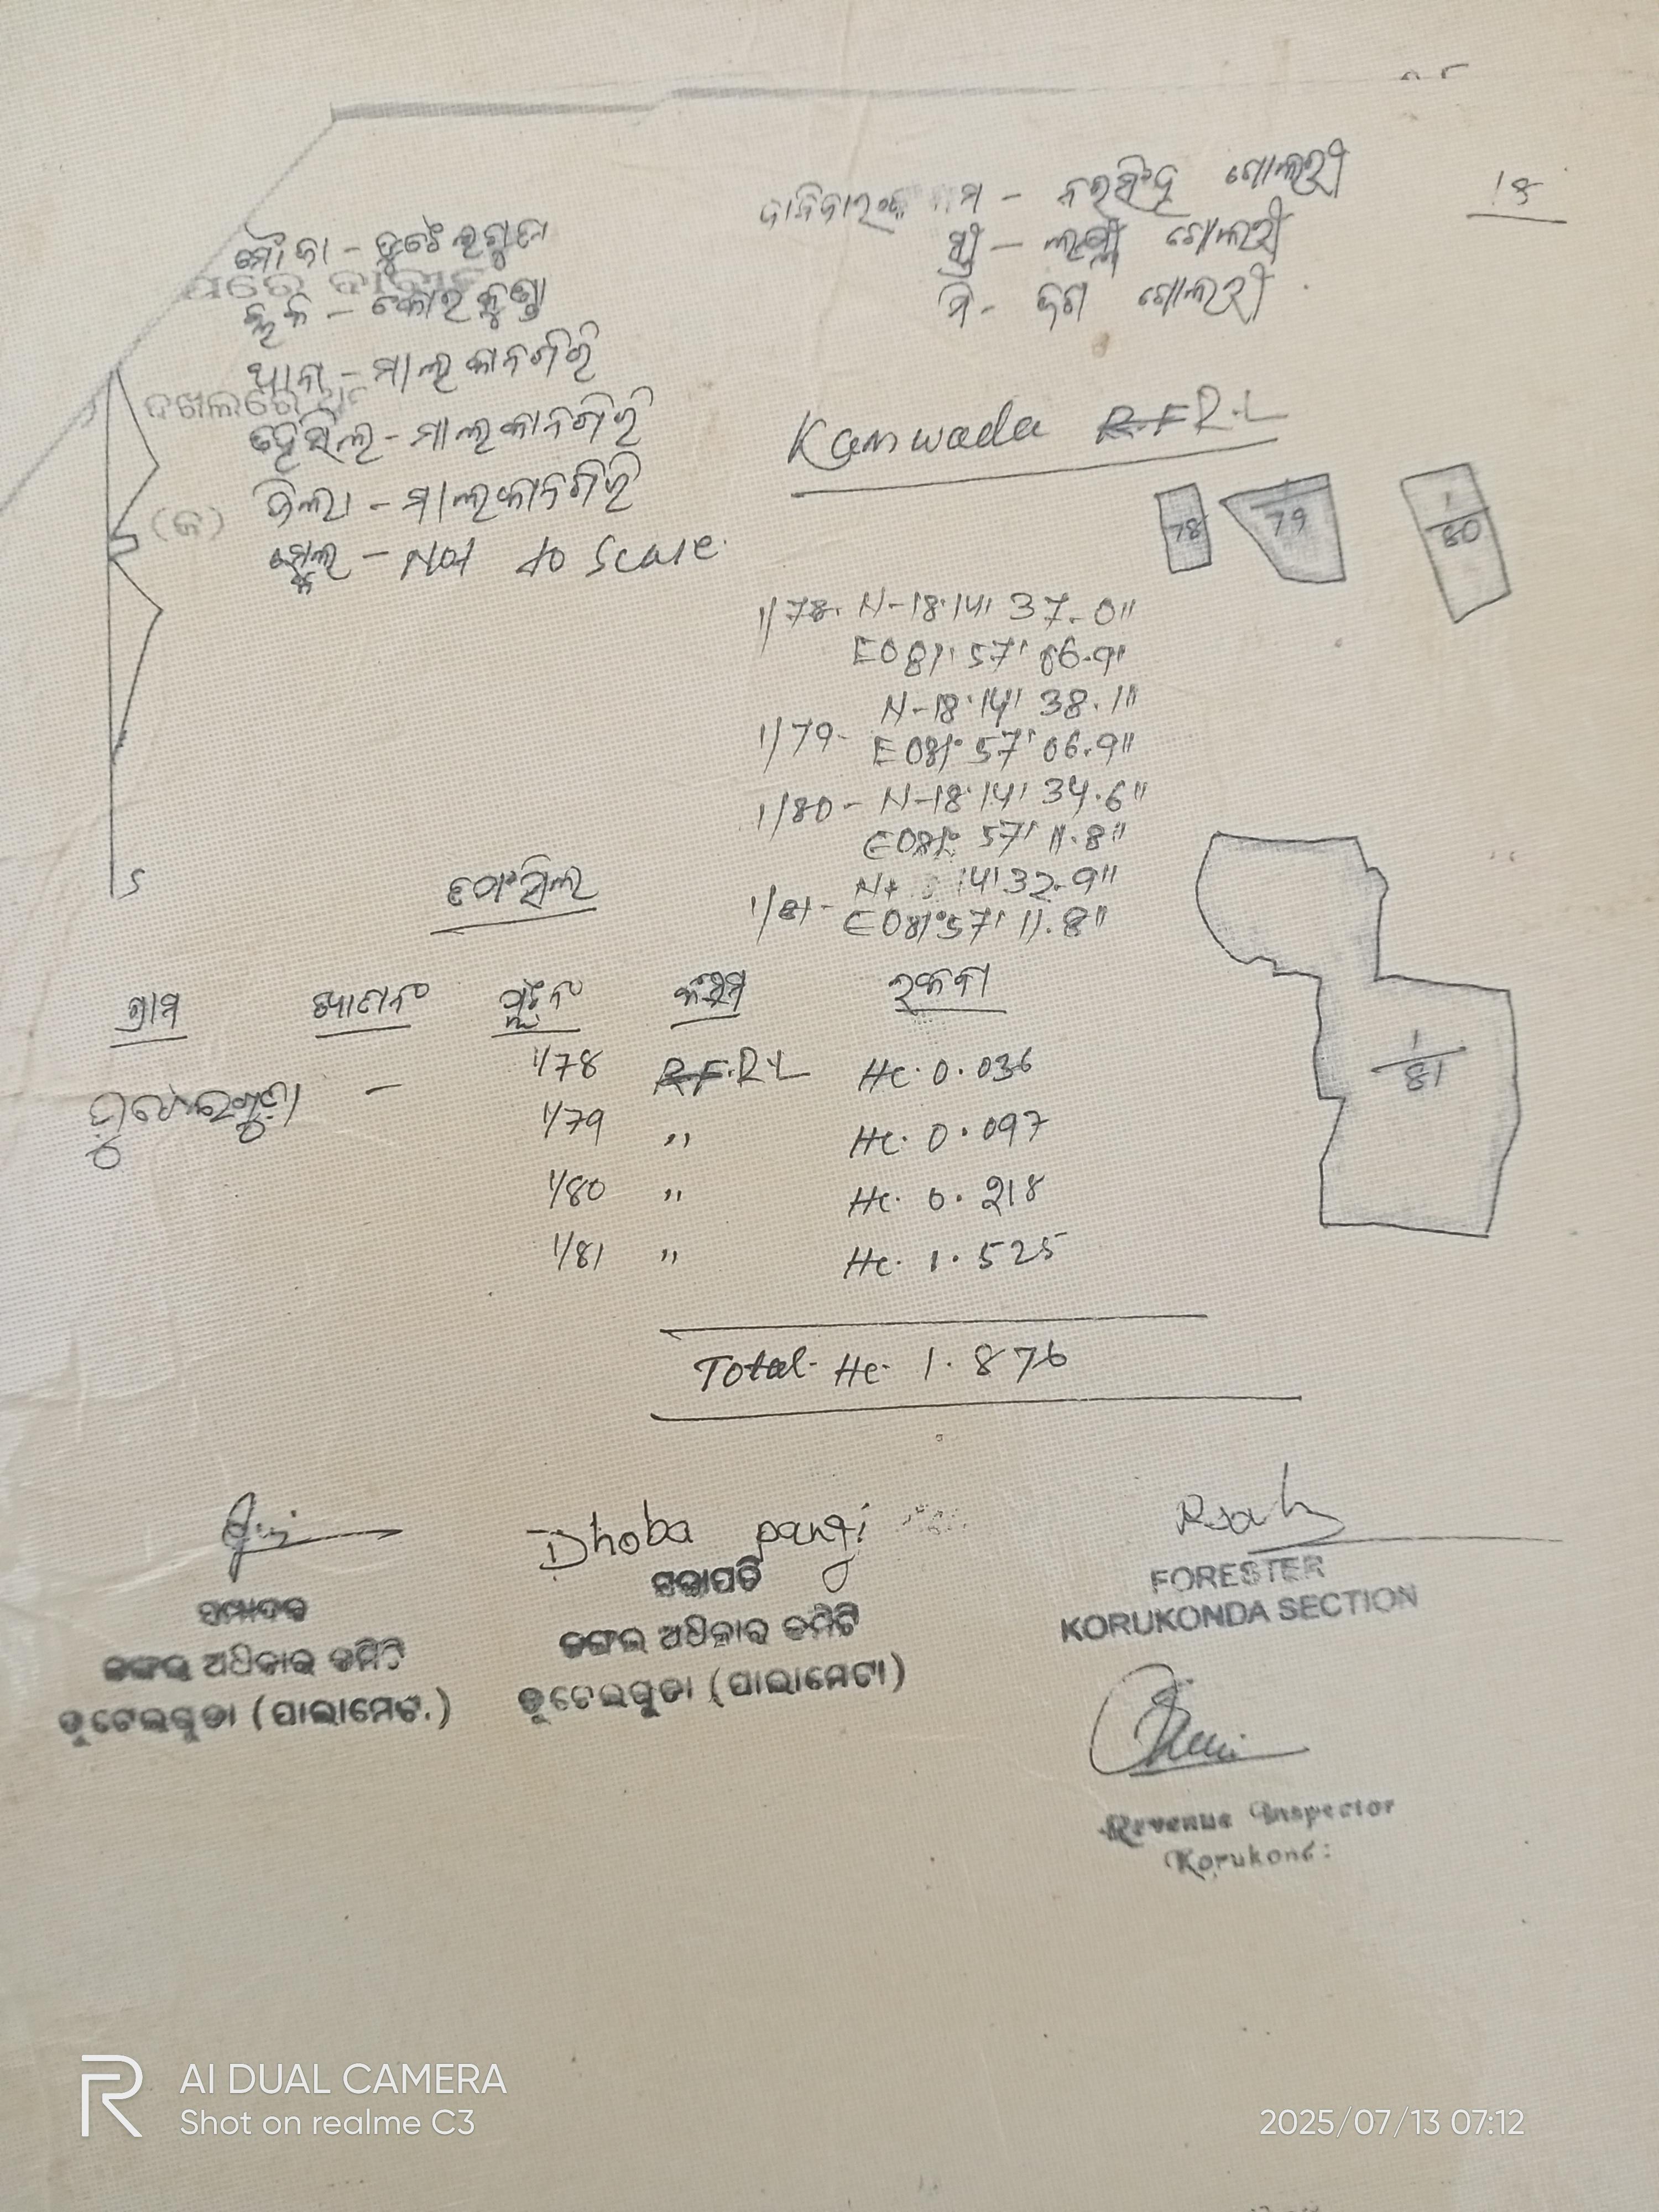 ମୌଜା - ଡୁଟେଇଗୁଡା
ବ୍ଲକ - କୋରକୁଣ୍ଡା
ଥାନା - ମାଲକାନଗିରି
ତହସିଲ - ମାଲକାନଗିରି
ଜିଲା - ମାଲକାନଗିରି
ସ୍କେଲ - Not to Scale.
ଦଖଲରେ
(କ)
S
ନରସିଂହ ଗୋଲରୀ
ସ୍ତ୍ରୀ - ଲକ୍ଷ୍ମୀ ଗୋଲରୀ
ପି - ଗୋଲରୀ
18
Kamwada R.F R.L
78
79
1/80
1/78. N-18°14' 37.0"
E081° 57' 06.9"
N-18°14' 38.1"
1/79- E081° 57' 06.9"
1/80- N-18°14' 34.6"
E081° 57' 11.8"
14' 32.9"
1/81- E081°57' 11.8"
1/81
ତପସିଲ
ଗ୍ରାମ ଖାତାନଂ ପ୍ଲଟନଂ କିସମ ରକବା
ଡୁଟେଇଗୁଡା - 1/78 R.F.R.L Hc. 0.036
1/79 " Hc. 0.097
1/80 " Hc. 0.218
1/81 " Hc. 1.525
Total- Hc. 1.876
Dhoba pangi
ସମ୍ପାଦକ
ଜଙ୍ଗଲ ଅଧିକାର କମିଟି
ଡୁଟେଇଗୁଡା (ପାଲାମେଟା)
ସଭାପତି
ଜଙ୍ଗଲ ଅଧିକାର କମିଟି
ଡୁଟେଇଗୁଡା (ପାଲାମେଟା)
FORESTER
KORUKONDA SECTION
Revenue Inspector
AI DUAL CAMERA
Shot on realme C3
2025/07/13 07:12